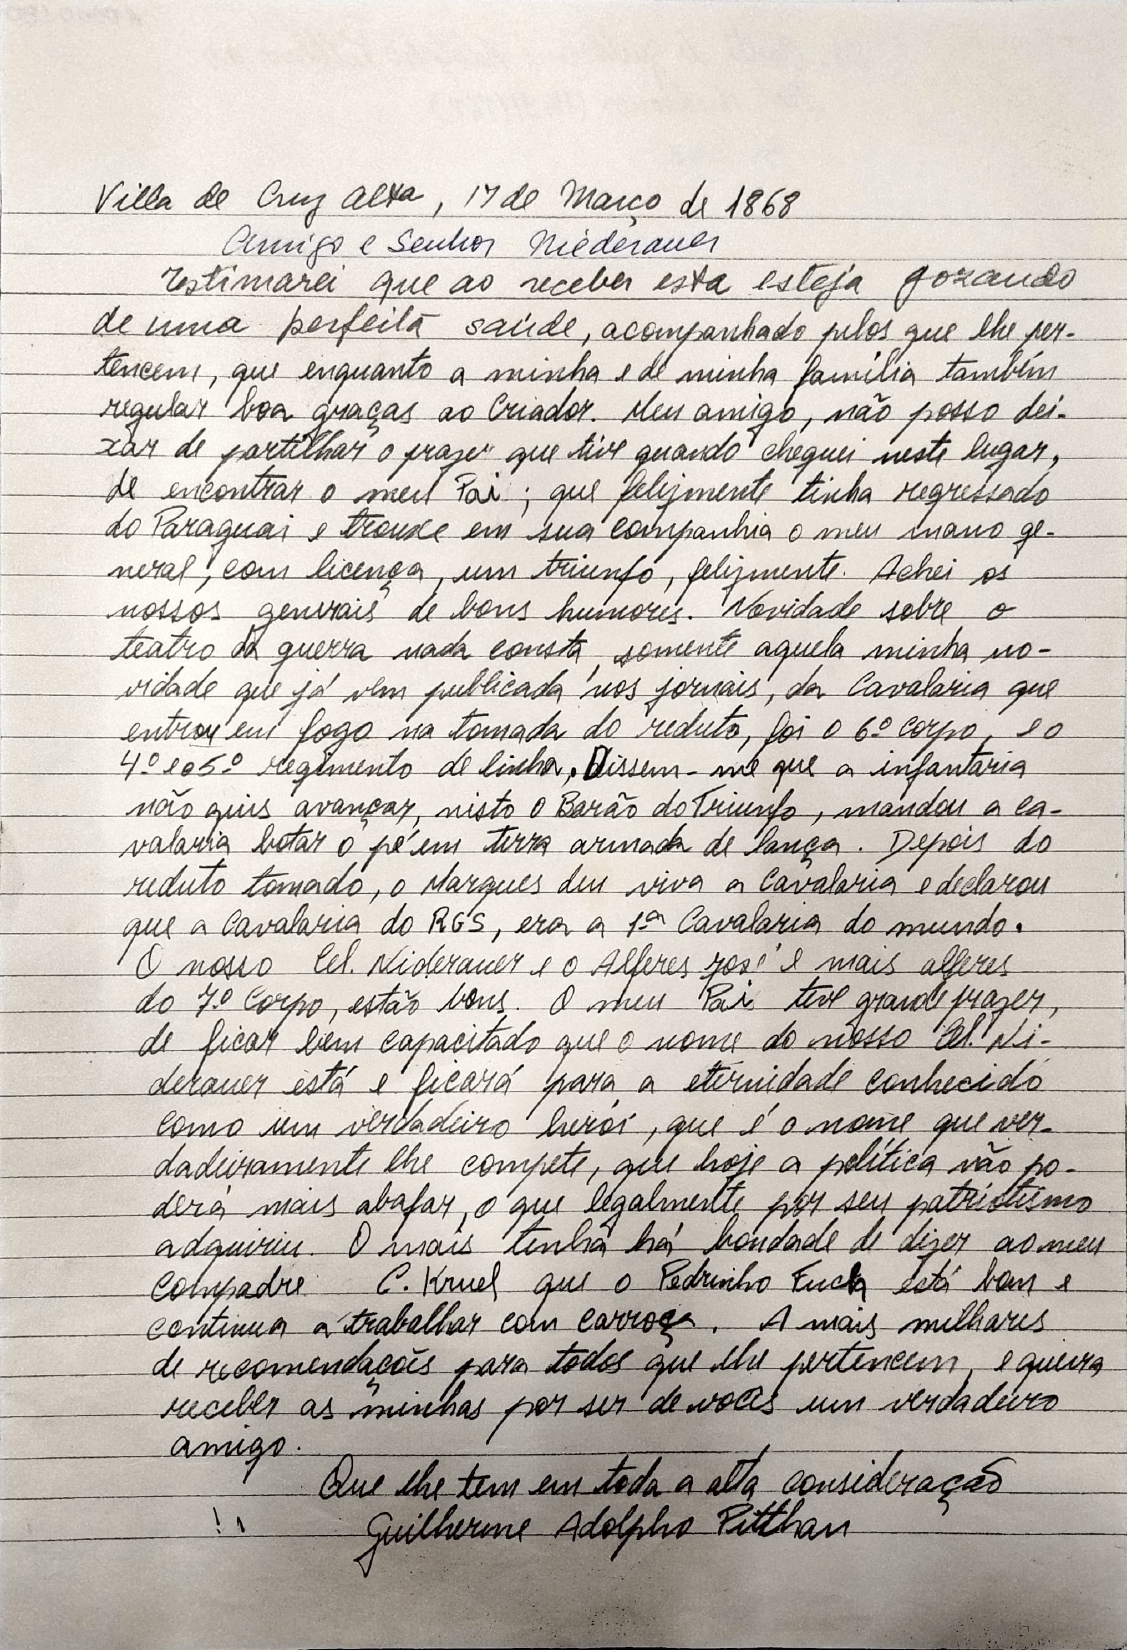 Villa de Cruz Alta, 17 de Março de 1868
Amigo e Senhor Niederauer
Estimarei que ao receber esta esteja gozando
de uma perfeita saúde, acompanhado pelos que lhe per-
tencem, que enquanto a minha e de minha família também
regular boa graças ao Criador. Meu amigo, não posso dei-
xar de partilhar o prazer que tive quando cheguei neste lugar,
de encontrar o meu Pai; que felizmente tinha regressado
do Paraguai e trouxe em sua companhia o meu mano ge-
neral, com licença, um triunfo, felizmente. Achei os
nossos generais de bons humores. Novidade sobre o
teatro da guerra nada consta, somente aquela minha no-
vidade que já vem publicada nos jornais, da Cavalaria que
entrou em fogo na tomada do reduto, foi o 6º corpo, e o
4º e o 5º regimento de linha. Dissem-me que a infantaria
não quis avançar, nisto o Barão do Triunfo, mandou a ca-
valaria botar o pé em terra armada de lança. Depois do
reduto tomado, o Marques deu viva a Cavalaria e declarou
que a Cavalaria do RGS, era a 1ª Cavalaria do mundo.
O nosso Cel. Niderauer e o Alferes José e mais alferes
do 7º Corpo, estão bons. O meu Pai teve grande prazer,
de ficar bem capacitado que o nome do nosso Cel. Ni-
derauer está e ficará para a eternidade conhecido
como um verdadeiro herói, que é o nome que ver-
dadeiramente lhe compete, que hoje a política não po-
derá mais abafar, o que legalmente por seu patriotismo
adquiriu. O mais tenha há bondade de dizer ao meu
Compadre C. Kruel que o Pedrinho Fuck está bom e
continua a trabalhar com carroça. A mais milhares
de recomendações para todos que lhe pertencem, e queira
receber as minhas por ser de vocês um verdadeiro
amigo.
Que lhe tem em toda a alta consideração
Guilherme Adolpho Pitthan